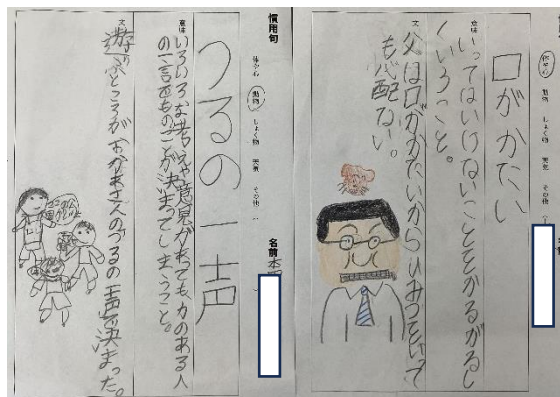 体や心 動物 しょく物 天気 その他
口がかたい
意味
いってはいけないことをかるがるし
くいわないこと。
文
父は口がかたいからひみつをいって
も心配ない。
慣用句
体や心 動物 しょく物 天気 その他
名前
つるの一声
意味
いろいろな考えや意見があっても、力のある人
の一言でものごとが決まってしまうこと。
文
遊ぶところがおかあさんのつるの一声で決まった。